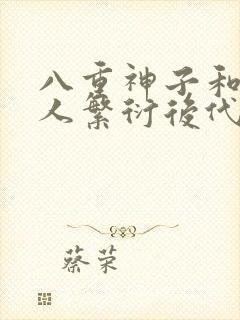 八重神子和
人繁衍後代
蔡荣